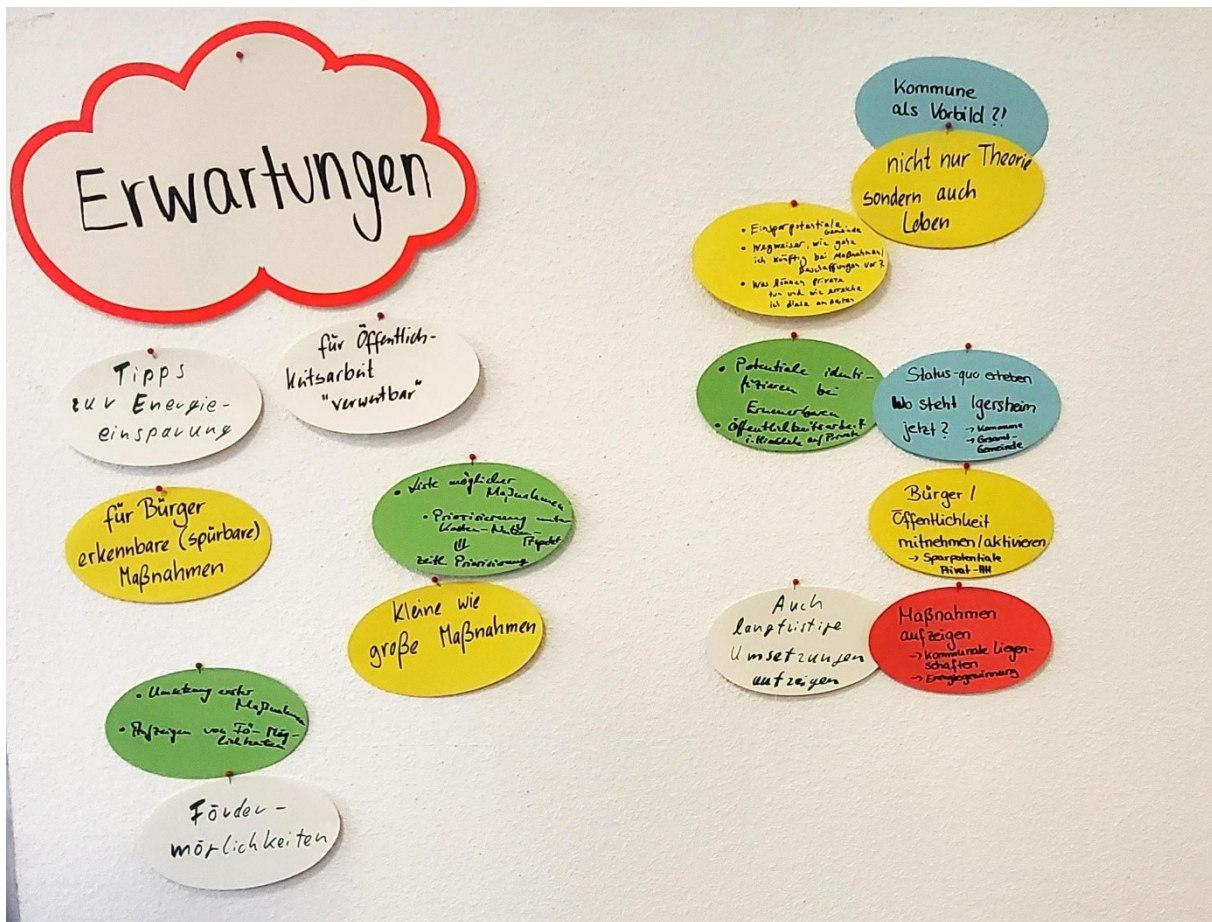 Erwartungen
Tipps
zur Energie-
einsparung
für Öffentlich-
keitsarbeit
"verwertbar"
für Bürger
erkennbare (spürbare)
Maßnahmen
• Liste möglicher
Maßnahmen
• Priorisierung unter
Kosten-Nutzen
Aspekt
zeitl. Priorisierung
Kleine wie
große Maßnahmen
• Umsetzung erster
Maßnahmen
• Aufzeigen von Fö-Mög-
lichkeiten
Förder-
möglichkeiten
Kommune
als Vorbild?!
nicht nur Theorie
sondern auch
Leben
• Einsparpotentiale
Gemeinde
• Wegweiser, wie gehe
ich künftig bei Maßnahmen/
Beschaffungen vor?
• Was können Private
tun und wie erreiche
ich diese am besten
• Potentiale identi-
fizieren bei
Erneuerbaren
• Öffentlichkeitsarbeit
i. Hinblick auf Private
Status-quo erheben
Wo steht Igersheim
jetzt? → Kommune
→ Gesamt-
Gemeinde
Bürger /
Öffentlichkeit
mitnehmen/aktivieren
→ Sparpotentiale
Privat-HH
Auch
langfristige
Umsetzungen
aufzeigen
Maßnahmen
aufzeigen
→ Kommunale Liegen-
schaften
→ Energiegewinnung